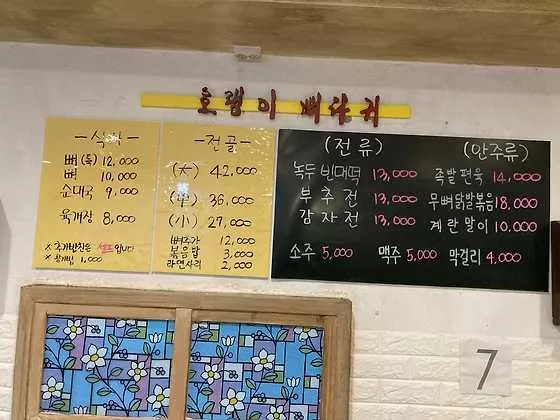 호랭이 뼈다귀
- 식사 -
뼈(특) 12,000
뼈 10,000
순대국 9,000
육개장 8,000
※ 추가반찬은 셀프입니다
※ 공기밥 1,000
- 전골 -
(大) 42,000
(中) 36,000
(小) 27,000
뼈추가 12,000
볶음밥 3,000
라면사리 2,000
(전류)
녹두빈대떡 13,000
부추전 13,000
감자전 13,000
(안주류)
족발편육 14,000
무뼈닭발볶음 18,000
계란말이 10,000
소주 5,000 맥주 5,000 막걸리 4,000
7